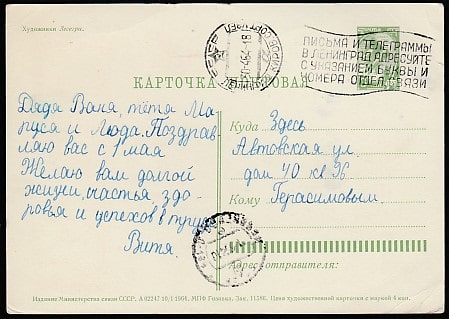 Художники Лесегри.
ПИСЬМА И ТЕЛЕГРАММЫ
В ЛЕНИНГРАД АДРЕСУЙТЕ
С УКАЗАНИЕМ БУКВЫ И
НОМЕРА ОТДЕЛ. СВЯЗИ
КАРТОЧКА ПОЧТОВАЯ
Дядя Ваня, тётя Ма
руся и Люда. Поздрав
ляю вас с 1 мая
Желаю вам долгой
жизни, счастья, здо-
ровья и успехов в труде
Витя.
Куда Здесь
Автовская ул
дом 40 кв 96
Кому Герасимовым.
Адрес отправителя:
Издание Министерства связи СССР. А 02247 10/I-1964. МПФ Гознака. Зак. 11386. Цена художественной карточки с маркой 4 коп.